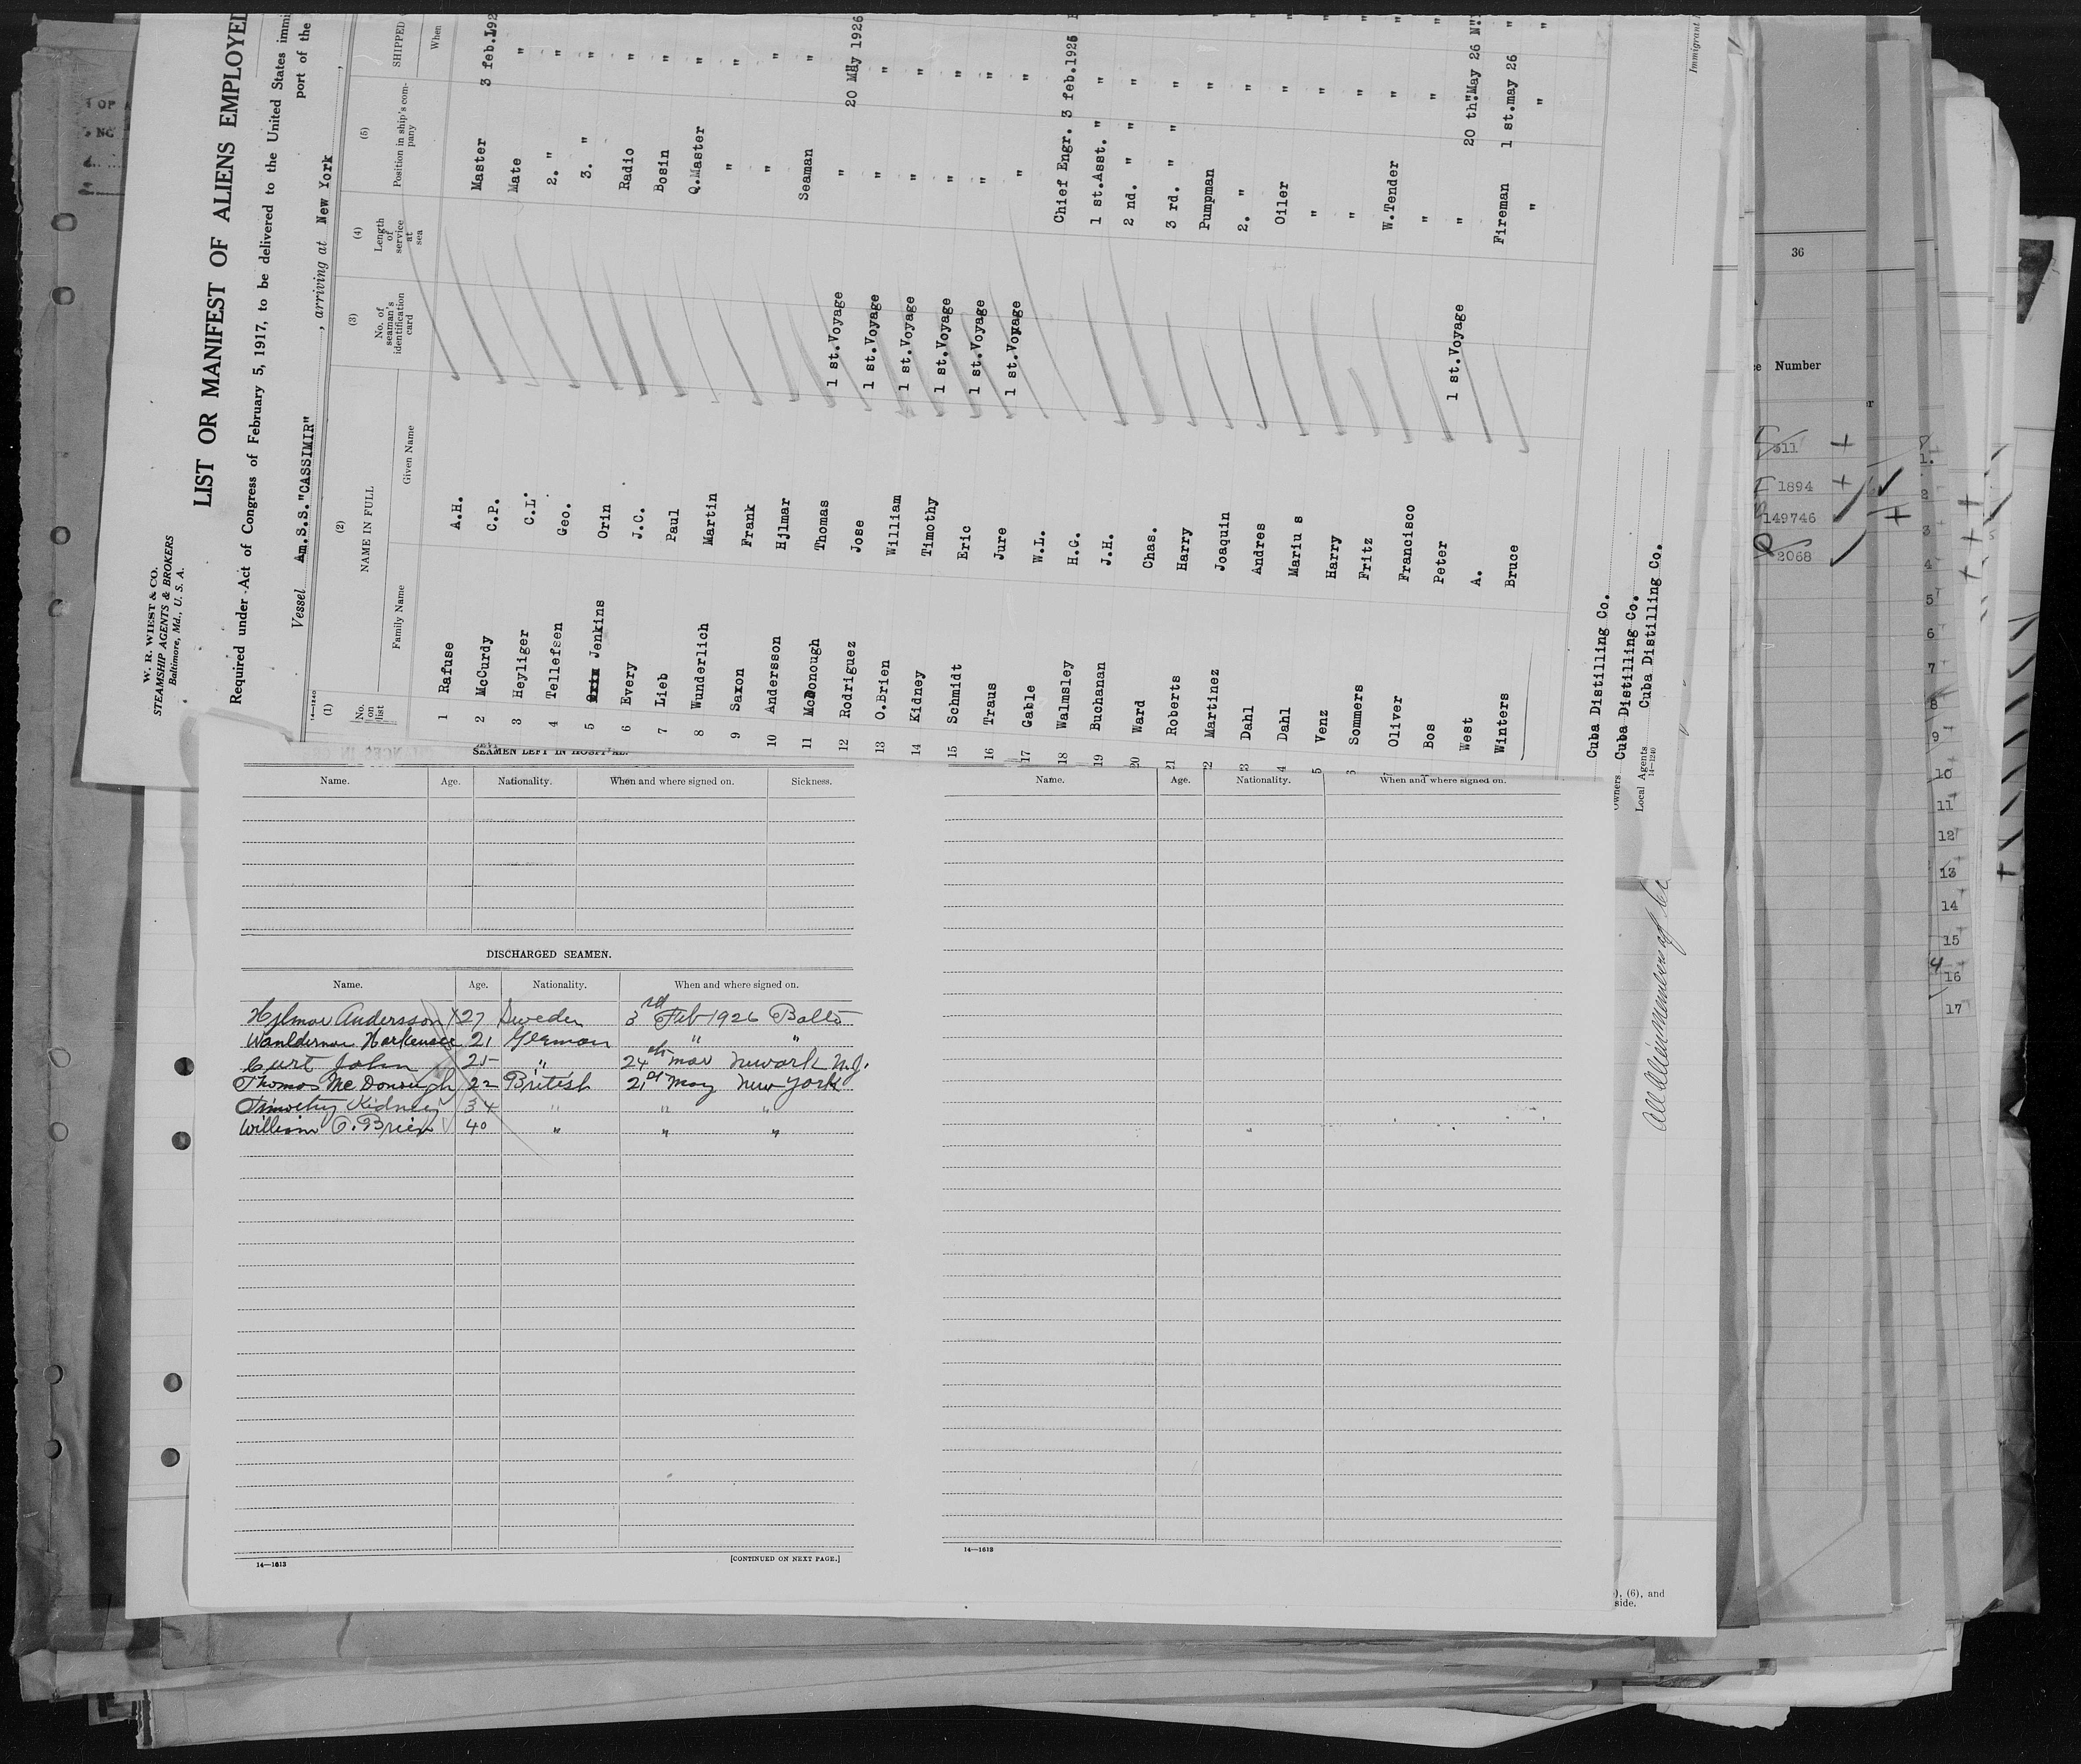 W. R. WIEST & CO.
STEAMSHIP AGENTS & BROKERS
Baltimore, Md., U. S. A.
LIST OR MANIFEST OF ALIENS EMPLOYED
Required under Act of Congress of February 5, 1917, to be delivered to the United States immi
port of the
Vessel Am.S.S."CASSIMIR" , arriving at New York
14—1240
(1) (2) (3) (4) (5) SHIPPED
No. on list NAME IN FULL No. of seaman's identification card Length of service at sea Position in ship's company When
Family Name Given Name
1 Rafuse A.H. Master 3 feb.192
2 McCurdy C.P. Mate "
3 Heyliger C.L. 2. " "
4 Tellefsen Geo. 3. " "
5 Jenkins Orin Radio "
6 Every J.C. Bosin "
7 Lieb Paul Q.Master "
8 Wunderlich Martin " "
9 Saxon Frank " "
10 Andersson Hjlmar Seaman "
11 McDonough Thomas 1 st.Voyage " 20 May 1926
12 Rodriguez Jose 1 st.Voyage " "
13 O.Brien William 1 st.Voyage " "
14 Kidney Timothy 1 st.Voyage " "
15 Schmidt Eric 1 st.Voyage " "
16 Traus Jure 1 st.Voyage " "
17 Gable W.L. Chief Engr. 3 feb.1926
18 Walmsley H.G. 1 st.Asst. " "
19 Buchanan J.H. 2 nd. " " "
20 Ward Chas. 3 rd. " " "
21 Roberts Harry Pumpman "
2 Martinez Joaquin 2. " "
3 Dahl Andres Oiler "
4 Dahl Mariu s " "
5 Venz Harry " "
6 Sommers Fritz W.Tender "
Oliver Francisco " "
Bos Peter 1 st.Voyage " 20 th"May 26 N.
West A. Fireman 1 st.may 26 "
Winters Bruce " " "
Cuba Distilling Co.
Owners Cuba Distilling Co.
Local Agents Cuba Distilling Co.
14—1240
Immigrant
SEAMEN LEFT IN HOSPITAL.
Name. Age. Nationality. When and where signed on. Sickness.
DISCHARGED SEAMEN.
Name. Age. Nationality. When and where signed on.
Hjlmar Andersson 27 Sweden 3rd Feb 1926 Balto
21 German " "
Curt John 25 " 24th mar Newark N.J.
Thomas McDonough 22 British 21st May New York
Timothy Kidney 34 " " "
William O.Brien 40 " " "
14—1613 [CONTINUED ON NEXT PAGE.]
Name. Age. Nationality. When and where signed on.
14—1613
), (6), and
side.
36
Number
611
1894
149746
2068
1.
2
3
4
5
6
7
8
9
10
11
12
13
14
15
16
17